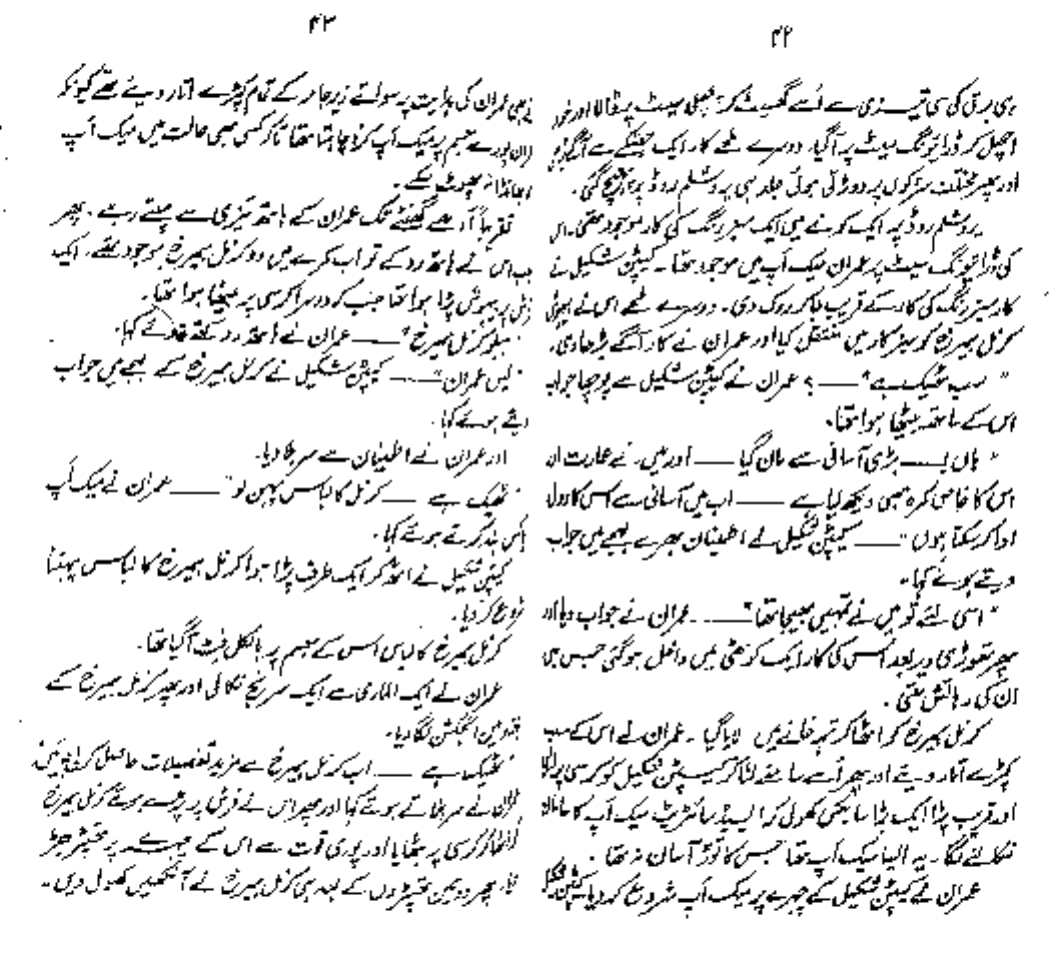 ۴۲
ہی برق کی سی تیزی سے اُسے گھسیٹ کر پچھلی سیٹ پر ڈالا اور خود
اچھل کر ڈرائیونگ سیٹ پر آگیا۔ دوسرے لمحے کار ایک جھٹکے سے آگے بڑھی
اور پھر مختلف سڑکوں پر دوڑتی ہوئی جلد ہی یروشلم روڈ پر پہنچ گئی۔
یروشلم روڈ پر ایک کونے میں ایک سبز رنگ کی کار موجود تھی۔ اس
کی ڈرائیونگ سیٹ پر عمران میک اَپ میں موجود تھا۔ کیپٹن شکیل نے
کار سبز رنگ کی کار کے قریب جا کر روک دی۔ دوسرے لمحے اس نے بیہوش
کرنل ہمیرخ کو سبز کار میں منتقل کیا اور عمران نے کار آگے بڑھا دی۔
" سب ٹھیک ہے " ــــ ؟ عمران نے کیپٹن شکیل سے پوچھا جو اب
اس کے ساتھ بیٹھا ہوا تھا۔
" ہاں ــــ بڑی آسانی سے مان گیا ــــ اور میں نے عمارت اور
اس کا خاص کمرہ بھی دیکھ لیا ہے ــــ اب میں آسانی سے اس کا رول
ادا کر سکتا ہوں " ــــ کیپٹن شکیل نے اطمینان بھرے لہجے میں جواب
دیتے ہوئے کہا۔
" اسی لئے تو میں نے تمہیں بھیجا تھا " ــــ عمران نے جواب دیا اور
پھر تھوڑی دیر بعد اس کی کار ایک کوٹھی میں داخل ہو گئی جس میں
ان کی رہائش تھی۔
کرنل ہمیرخ کو اٹھا کر تہہ خانے میں لایا گیا۔ عمران نے اس کے سب
کپڑے اتار دیئے اور پھر اُسے سامنے لٹا کر کیپٹن شکیل کو کرسی پر بٹھایا
اور قریب پڑا ایک بڑا سا بکس کھول کر ایسیڈ سائنٹریٹ میک اَپ کا سامان
نکالنے لگا۔ یہ ایسا میک اَپ تھا جس کا توڑ آسان نہ تھا۔
عمران نے کیپٹن شکیل کے چہرے پر میک اَپ شروع کر دیا کیپٹن شکیل
۴۳
نے بھی عمران کی ہدایت پر سوائے زیر جامہ کے تمام کپڑے اتار دیئے تھے کیونکہ
عمران پورے جسم پر میک اَپ کرنا چاہتا تھا تاکہ کسی بھی حالت میں میک اَپ
کا بھانڈا نہ پھوٹ سکے۔
تقریباً آدھے گھنٹے تک عمران کے ہاتھ تیزی سے چلتے رہے۔ پھر
جب اس نے ہاتھ روکے تو اب کمرے میں دو کرنل ہمیرخ موجود تھے۔ ایک
فرش پر بیہوش پڑا ہوا تھا جب کہ دوسرا کرسی پر بیٹھا ہوا تھا۔
" ہیلو کرنل ہمیرخ " ــــ عمران نے ہاتھ روکتے ہوئے کہا۔
" یس عمران " ــــ کیپٹن شکیل نے کرنل ہمیرخ کے لہجے میں جواب
دیتے ہوئے کہا۔
اور عمران نے اطمینان سے سر ہلا دیا۔
" ٹھیک ہے ــــ کرنل کا لباس پہن لو " ــــ عمران نے میک اَپ
بکس بند کرتے ہوئے کہا۔
کیپٹن شکیل نے اٹھ کر ایک طرف پڑا ہوا کرنل ہمیرخ کا لباس پہننا
شروع کر دیا۔
کرنل ہمیرخ کا لباس اس کے جسم پر بالکل فٹ آگیا تھا۔
عمران نے ایک الماری سے ایک سرنج نکالی اور پھر کرنل ہمیرخ کے
بازو میں انجکشن لگا دیا۔
" ٹھیک ہے ــــ اب کرنل ہمیرخ سے مزید تفصیلات حاصل کرنی چاہئیں "
عمران نے سر ہلاتے ہوئے کہا اور پھر اس نے فرش پر پڑے ہوئے کرنل ہمیرخ
کو اٹھا کر کرسی پر بٹھایا اور پوری قوت سے اس کے چہرے پر تھپڑ جڑ
دیا۔ پھر دو تین تھپڑوں کے بعد ہی کرنل ہمیرخ نے آنکھیں کھول دیں۔